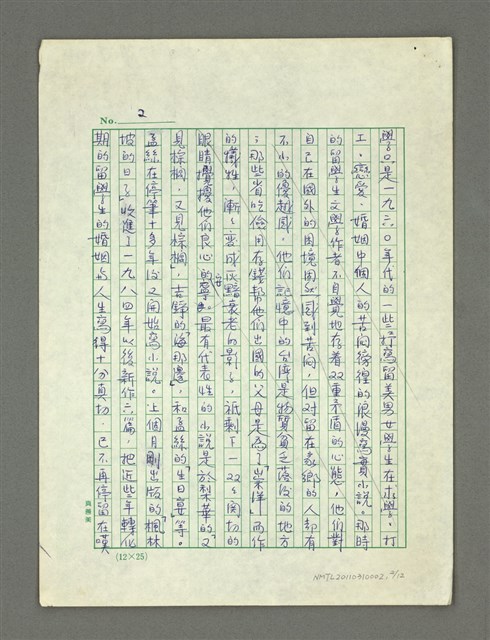 No. 2
學」。是一九六○年代的一些描寫留美男女學生在求學、打
工、戀愛、婚姻中個人的苦悶徬徨的浪漫寫實小說。那時
的留學生文學作者不自覺地存着双重矛盾的心態，他們對
自己在國外的困境固然感到苦悶，但對留在家鄉的人却有
不小的優越感。他們記憶中的台灣是物質貧乏落後的地方
；那些省吃儉用存錢幫他們出國的父母是為了「崇洋」而作
的犧牲，漸々变成灰黯衰老的影子，祇剩下一双々関切的
眼睛攪擾他們良心的寧安。最有代表性的小說是於梨華的「又
見棕櫚，又見棕櫚」，吉錚的「海那邊」和孟絲的「生日宴」等。
孟絲在停筆十多年後又開始寫小說。上個月剛出版的「楓林
坡的日子」收進了一九八四年以後新作六篇，把近些年轉化
期的留學生的婚姻與人生寫得十分真切，已不再停留在嘆
(12×25)
NMTL20110310002, 2/12